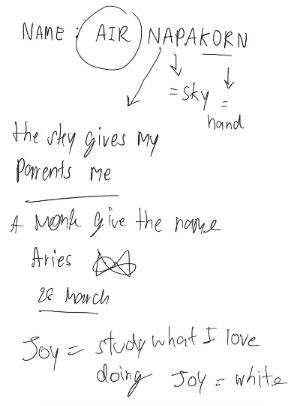 NAME : AIR NAPAKORN
= sky =
hand
the sky gives My
Parents Me
A Monk give the name
Aries
28 March
Joy = study what I love
doing Joy = white